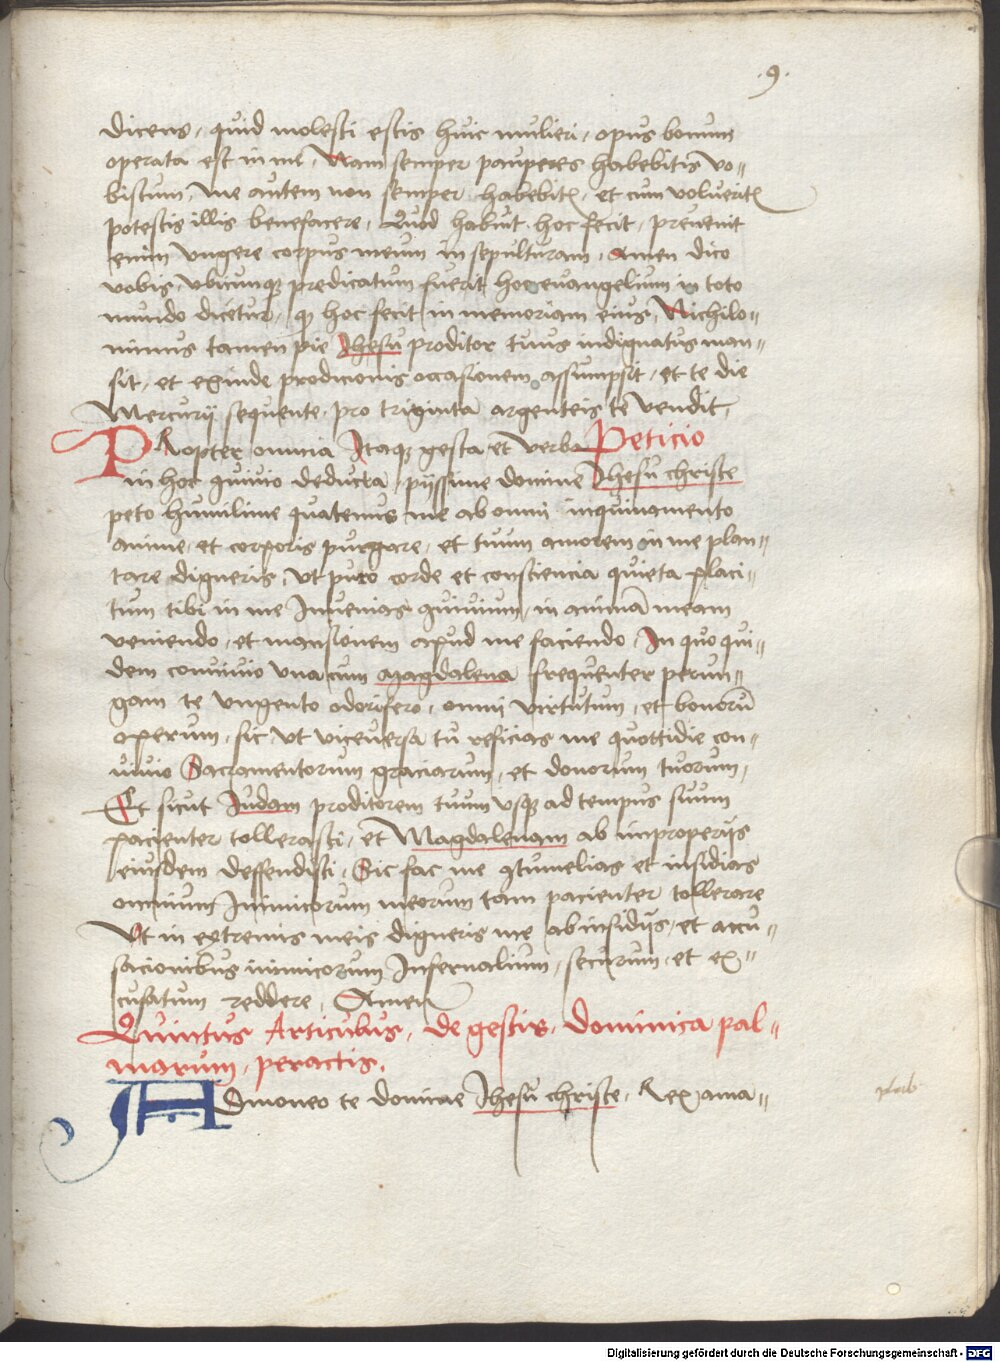 .9.
dicens, quid molesti estis huic mulieri, opus bonum
operata est in me, Nam semper pauperes habebitis vo=
biscum, me autem non semper habebitꝭ, et cum volueritꝭ
potestis illis benefacere, Quod habuit hoc fecit, preuenit
enim vngere corpus meum in sepulturam, Amen dico
vobis, vbicunqꝫ predicatum fuerit hoc euangelium in toto
mundo dicetur, qꝫ hoc fecit in memoriam eius, Nichilo=
minus tamen pie Jhesu proditor tuus indignatus man=
sit, et exinde prodicionis occasionem assumpsit, et te die
Mercurij sequente, pro triginta argenteis te vendit,
PRopter omnia Itaqꝫ gesta et verba Peticio
in hoc ꝯuiuio deducta, pijssime domine Jhesu christe
peto humilime quatenus me ab omni inquinamento
anime, et corporis purgare, et tuum amorem in me plan=
tare digneris, vt puro corde et consciencia quieta placi=
tum tibi in me Inuenias ꝯuiuium, in animā meam
veniendo, et mansionem apud me faciendo, In quo qui=
dem conuiuio vna cum Magdalena frequenter perun=
gam te vngento odorifero, omni virtutum, et bonorū
operum, sic vt viceuersa tu reficias me quottidie con=
uiuio Sacramentorum graciarum, et donorum tuorum,
Et sicut Judam proditorem tuum vsqꝫ ad tempus suum
pacienter tollerasti, et Magdalenam ab improperijs
eiusdem deffendisti, Sic fac me ꝯtumelias et insidias
omnium Inimicorum meorum tam pacienter tollerare
Vt in extremis meis digneris me ab insidijs, et accu=
sacionibus inimicorum Infernalium, securum, et ex=
cusatum reddere, Amen
Quintus Articulus, de gestis, dominica pal=
marum, peractis.
ADmoneo te domine Jhesu christe, Rex ama=
Digitalisierung gefördert durch die Deutsche Forschungsgemeinschaft - DFG